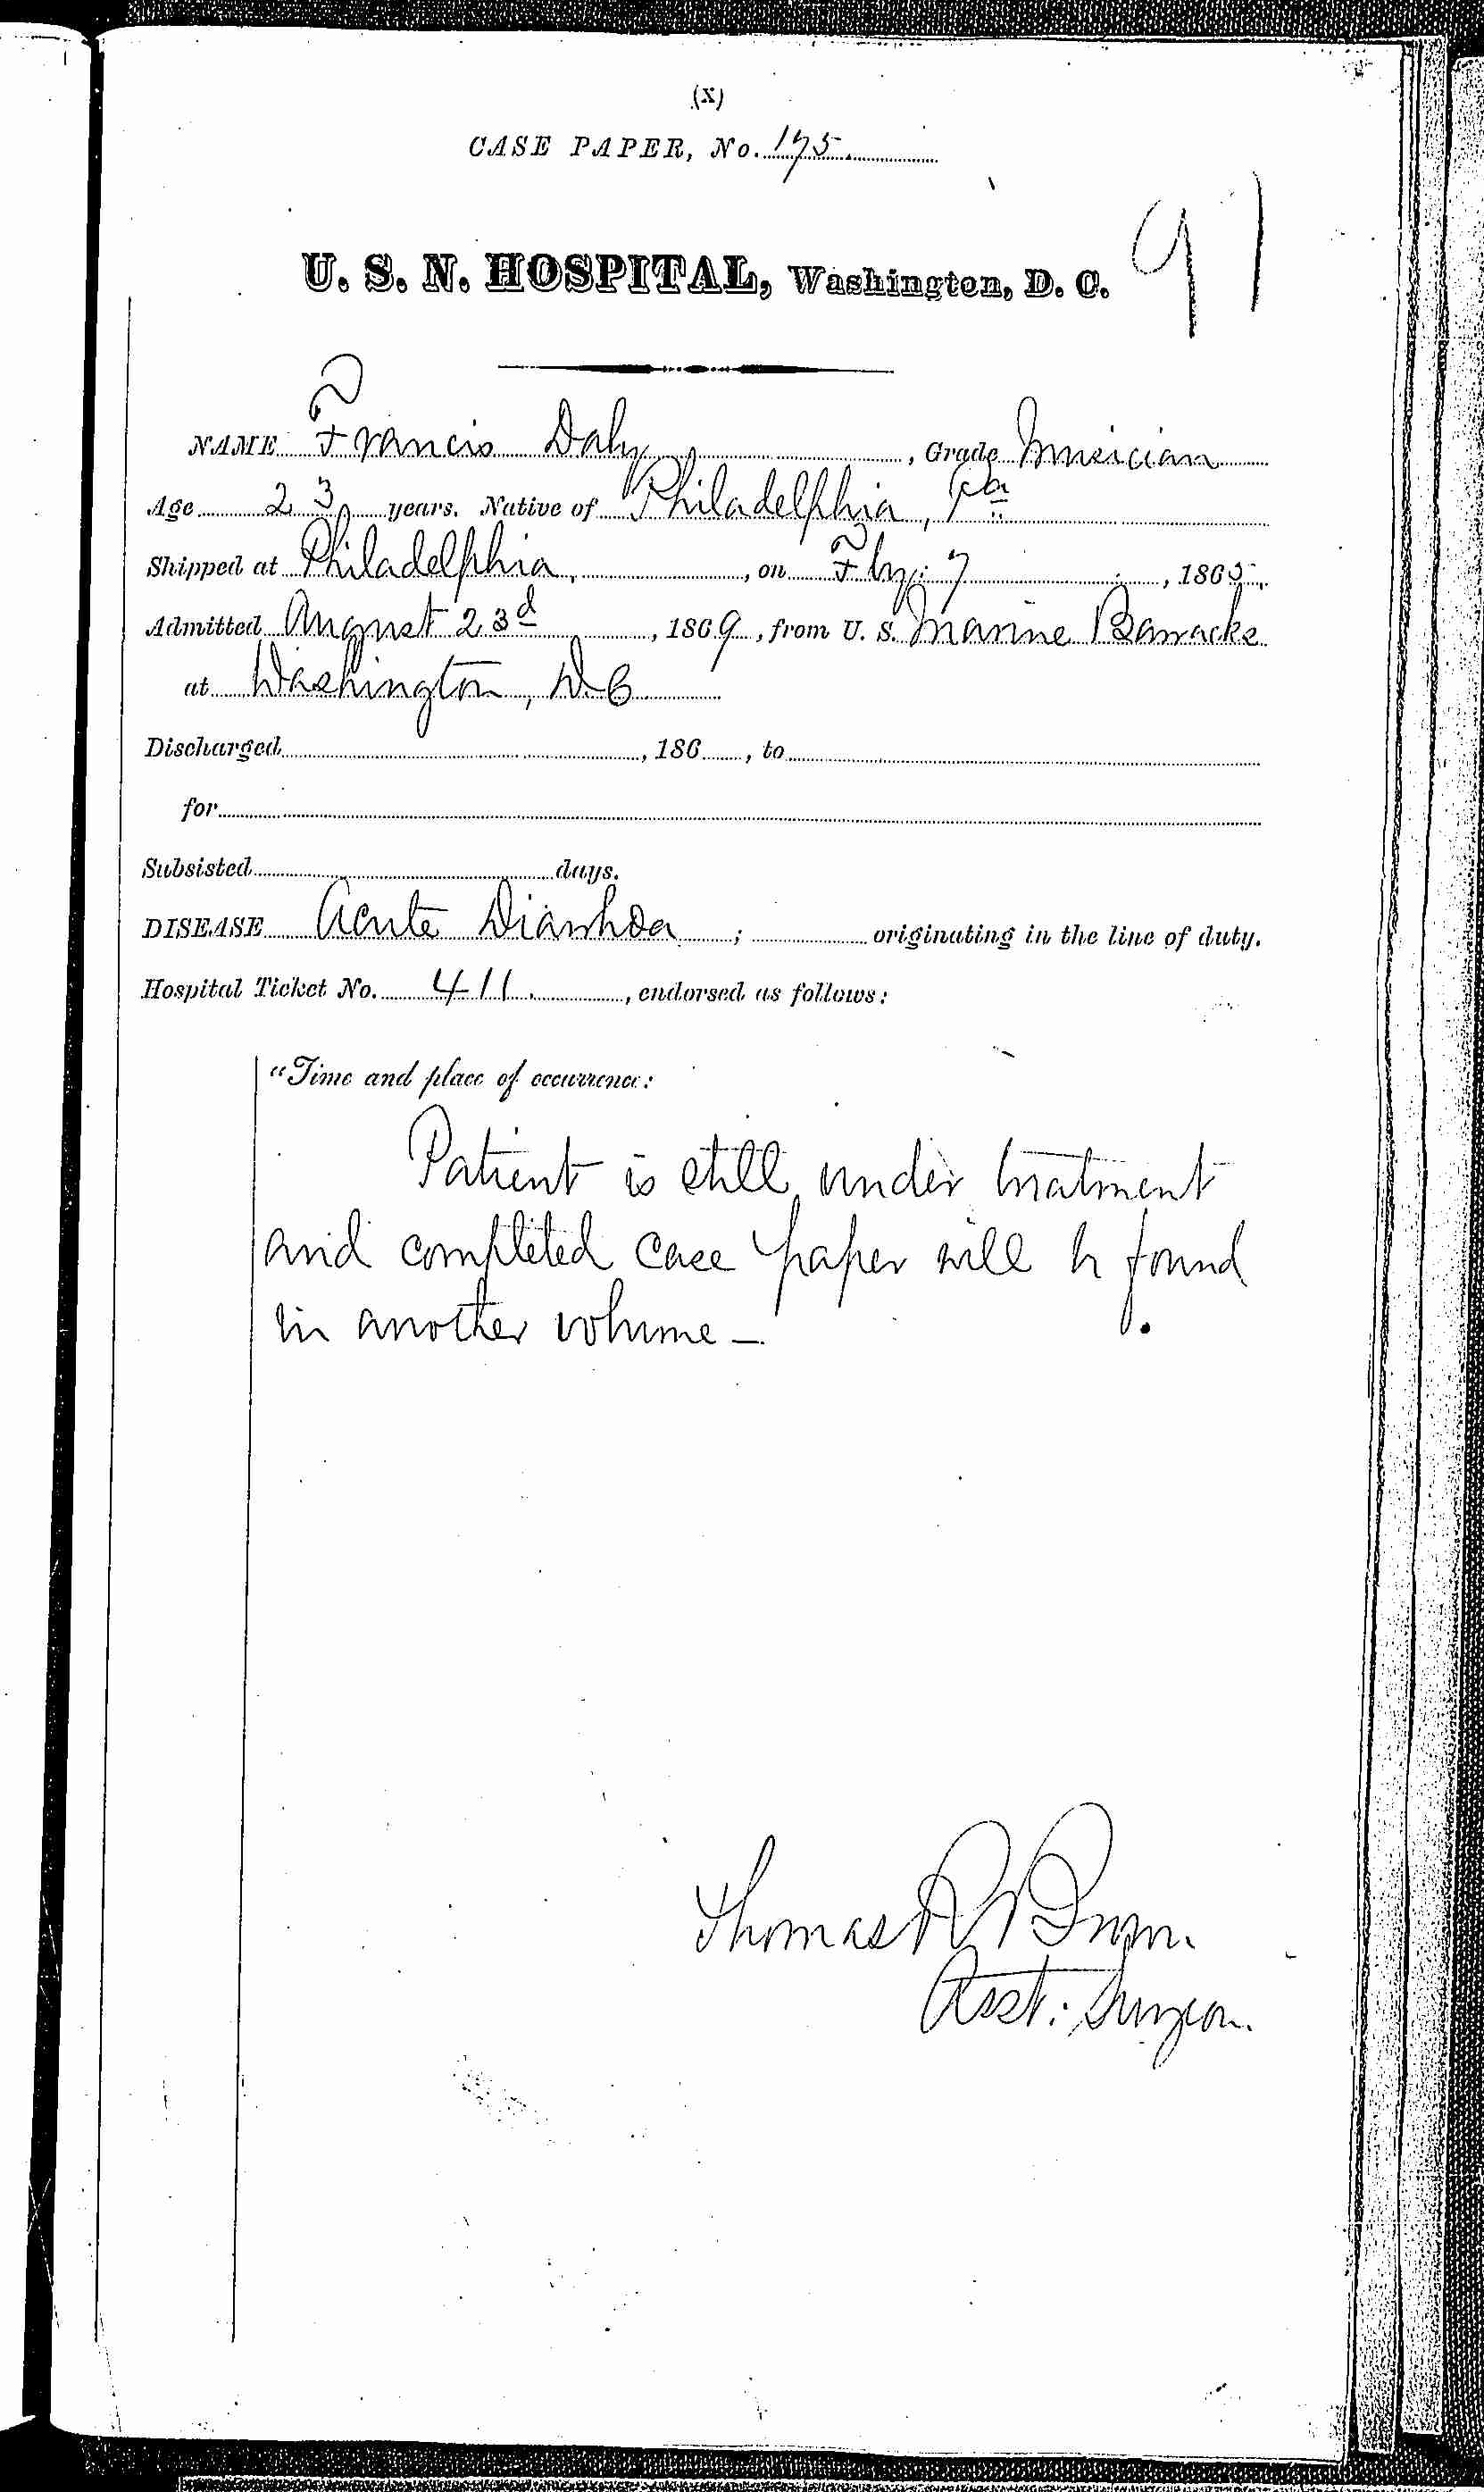 (X)
CASE PAPER, No. 175.
91
U. S. N. HOSPITAL, Washington, D. C.
NAME Francis Daly, Grade Musician
Age 23 years. Native of Philadelphia, Pa
Shipped at Philadelphia, on Fby: 7, 1865.
Admitted August 23d, 1869, from U. S. Marine Barracks
at Washington, D.C
Discharged, 186, to
for
Subsisted days.
DISEASE Acute Diarrhoea; originating in the line of duty.
Hospital Ticket No. 411., endorsed as follows:
"Time and place of occurrence:
Patient is still under treatment
and completed case paper will be found
in another volume —
Thomas R
Asst: Surgeon.